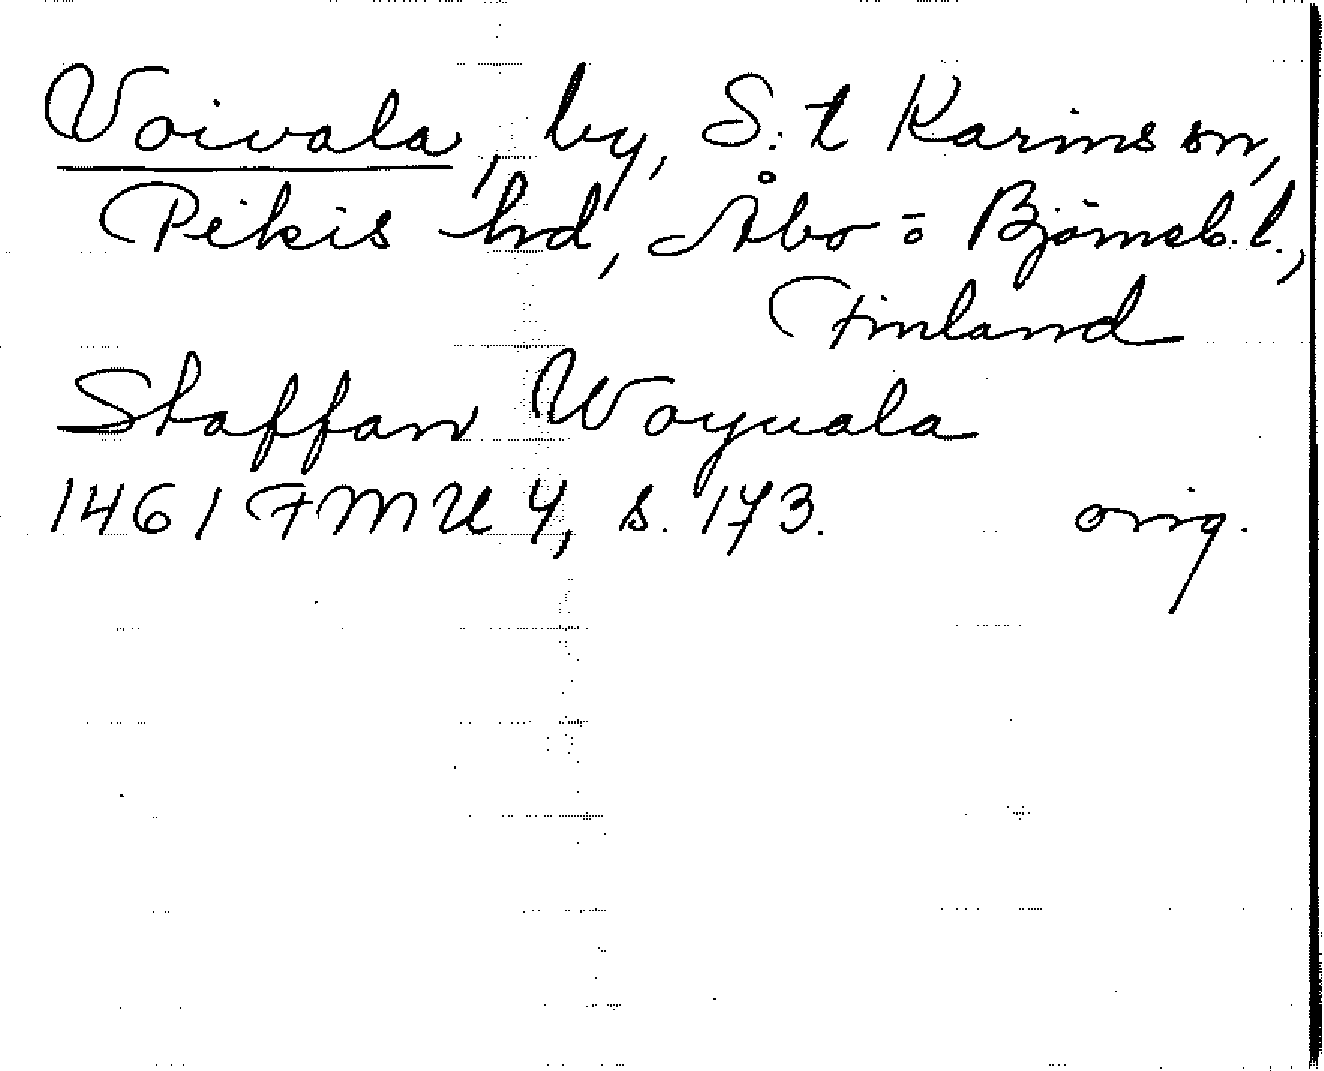 Voivala, by, S:t Karins sn,
Pikis hd, Åbo = Björneb. l.,
Finland
Staffan Woyuala
1461 FMU 4, s. 173. orig.